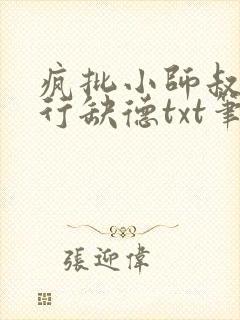 疯批小師叔
行缺德txt筆
張迎偉